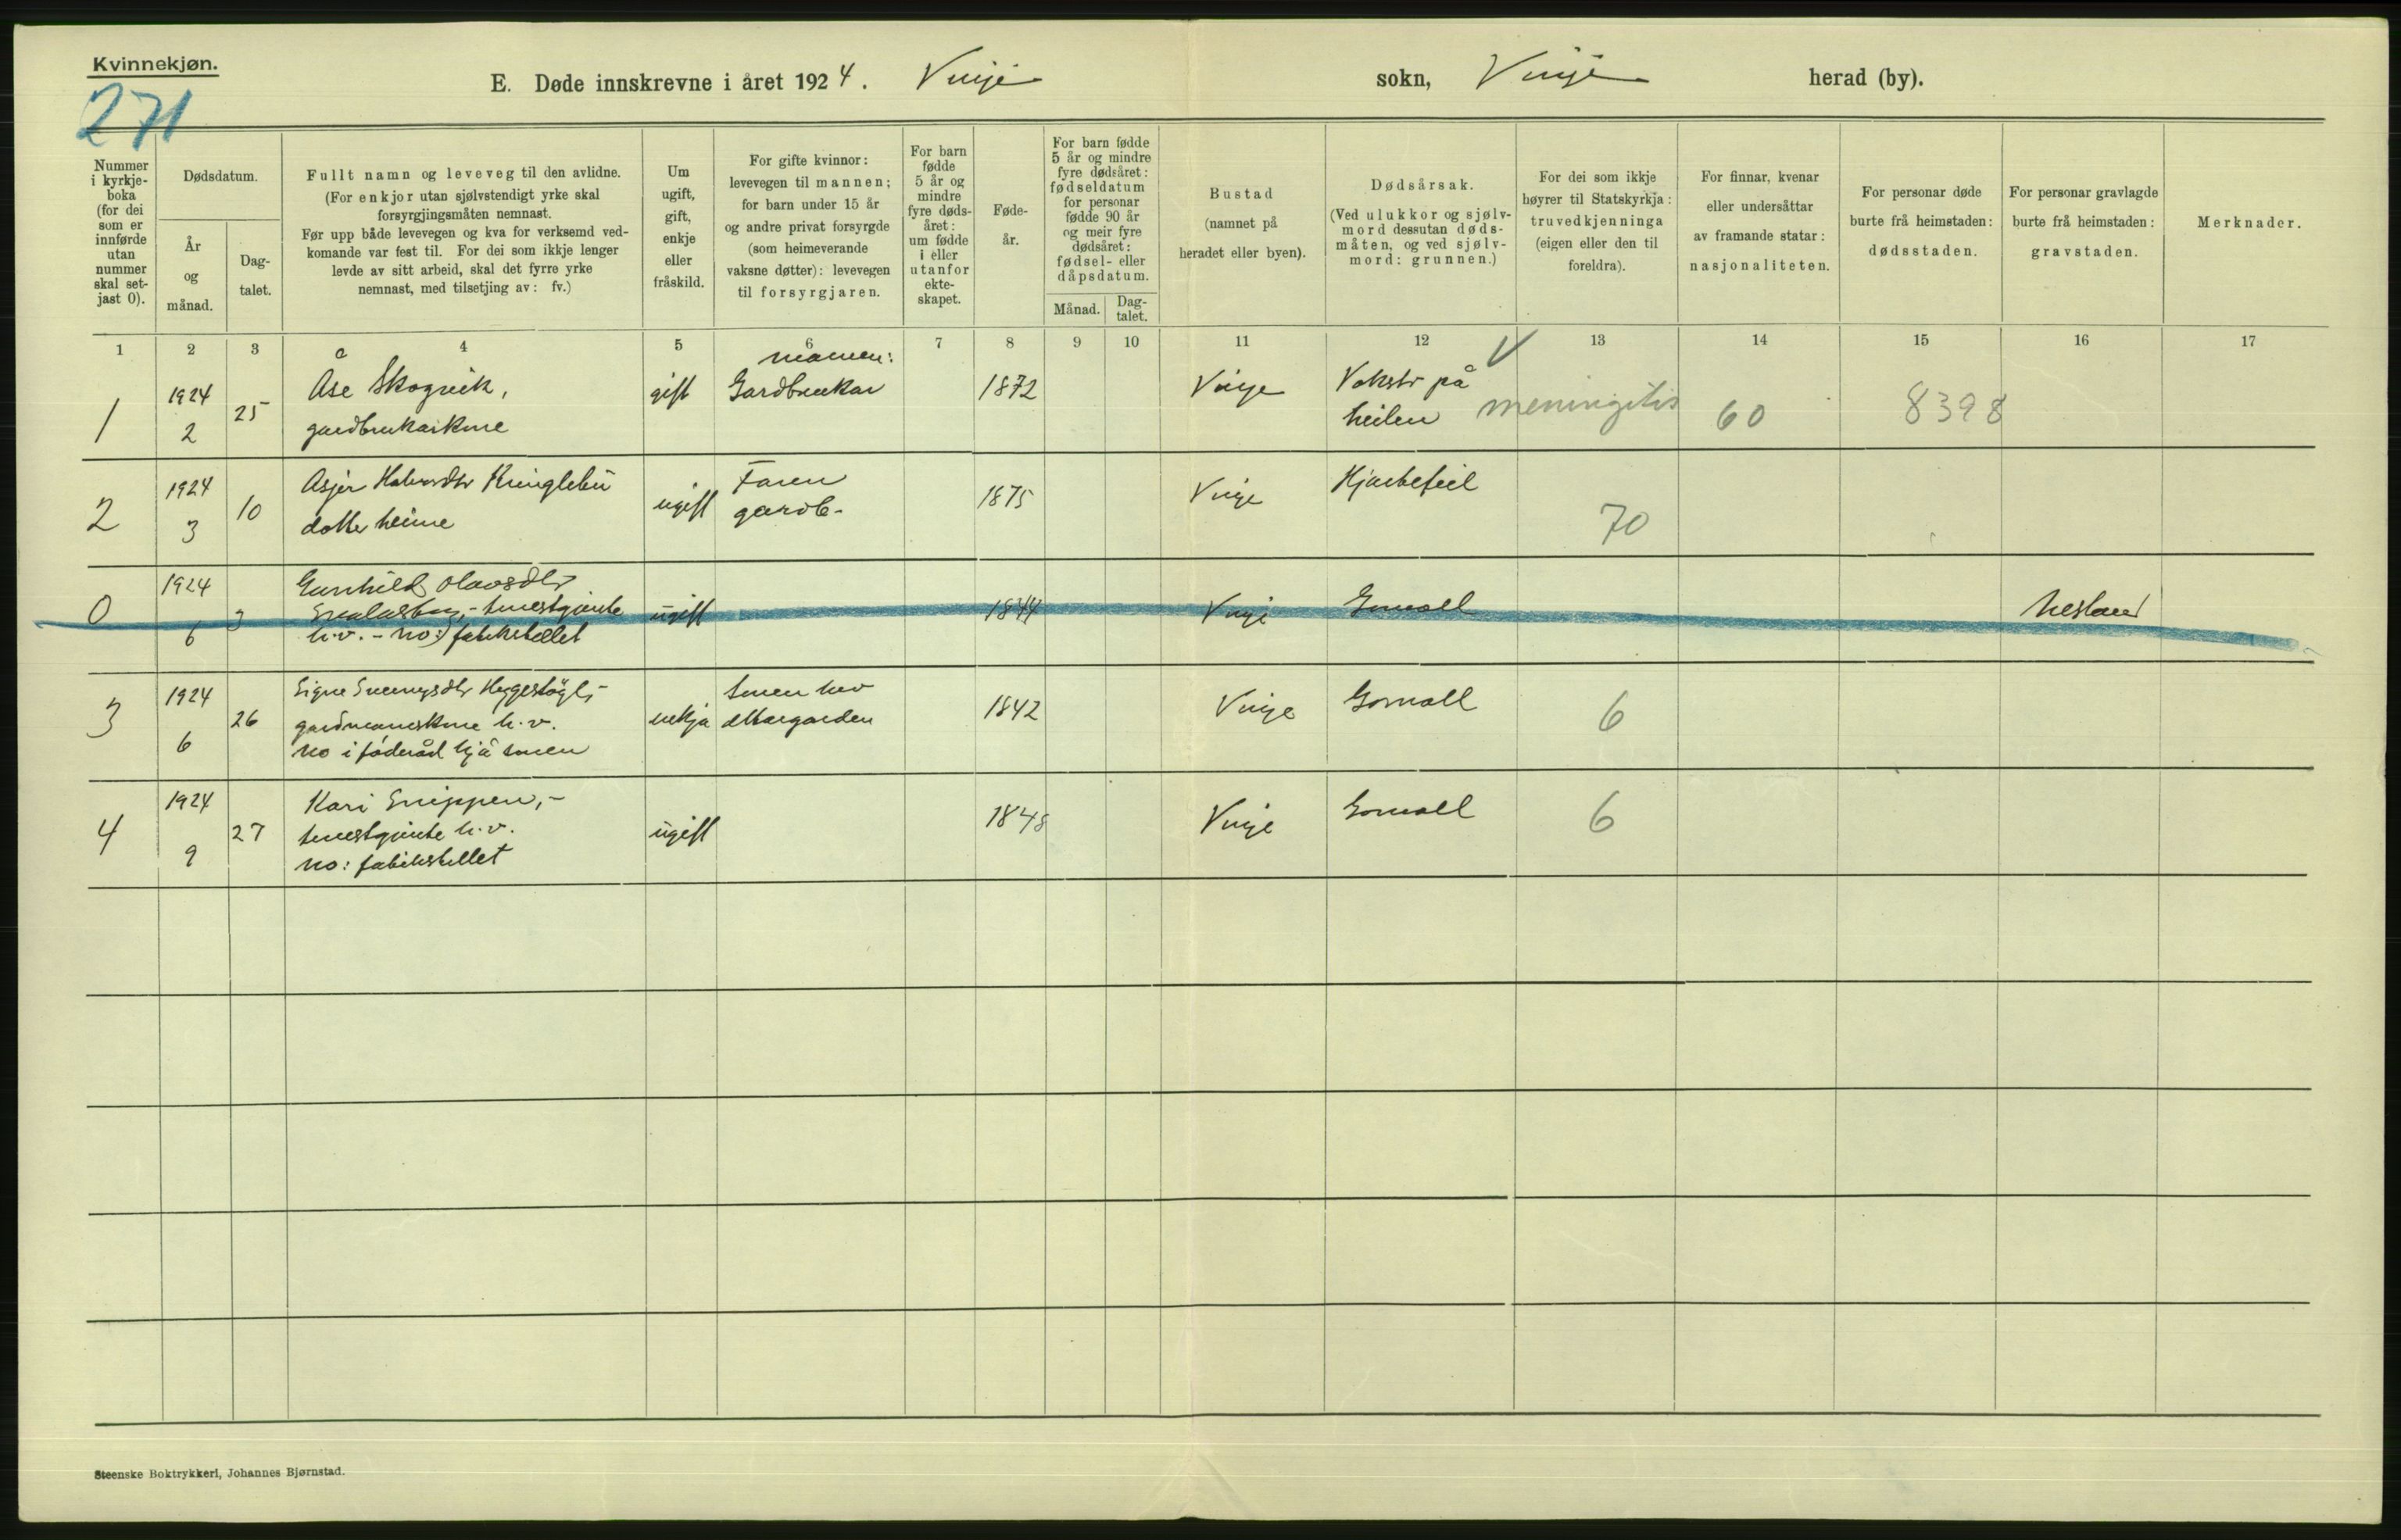 Kvinnekjøn.
271
E. Døde innskrevne i året 1924. Vinje sokn, Vinje herad (by).
Nummer i kyrkje-boka (for dei som er innførde utan nummer skal set-jast 0).
Dødsdatum.
År og månad.
Dag-talet.
Fullt namn og leveveg til den avlidne.
(For enkjor utan sjølvstendigt yrke skal
forsyrgjingsmåten nemnast.
Før upp både levevegen og kva for verksemd ved-
komande var fest til. For dei som ikkje lenger
levde av sitt arbeid, skal det fyrre yrke
nemnast, med tilsetjing av: fv.)
Um ugift, gift, enkje eller fråskild.
For gifte kvinnor:
levevegen til mannen;
for barn under 15 år
og andre privat forsyrgde
(som heimeverande
vaksne døtter): levevegen
til forsyrgjaren.
For barn fødde 5 år og mindre fyre døds-året: um fødde i eller utanfor ekte-skapet.
Føde-år.
For barn fødde
5 år og mindre
fyre dødsåret:
fødseldatum
for personar
fødde 90 år
og meir fyre
dødsåret:
fødsel- eller
dåpsdatum.
Månad.
Dag-talet.
Bustad
(namnet på
heradet eller byen).
Dødsårsak.
(Ved ulukkor og sjølv-
mord dessutan døds-
måten, og ved sjølv-
mord: grunnen.)
For dei som ikkje
høyrer til Statskyrkja:
truvedkjenninga
(eigen eller den til
foreldra).
For finnar, kvenar
eller undersåttar
av framande statar:
nasjonaliteten.
For personar døde
burte frå heimstaden:
dødsstaden.
For personar gravlagde
burte frå heimstaden:
gravstaden.
Merknader.
1 2 3 4 5 6 7 8 9 10 11 12 13 14 15 16 17
1 1924 2 25 Åse Skogvik, gardbrukarkone gift mannen: Gardbrukar 1872 Vinje Vokstr på heilen meningitis 60 8398
2 1924 3 10 Asjer Halvordtr Kringlebu dotter heime ugift Faren gardb- 1875 Vinje Hjartefeil 70
0 1924 6 3 Gunhild Olavsdtr tenestgjente h.v. - no: ugift 1844 Vinje Gomall Nesland
3 1924 6 26 Signe Sveinungsdtr gardmannskone h.v. no i føderåd hjå sonen enkja sonen hev ettargarden 1842 Vinje Gomall 6
4 1924 9 27 Kari Snippen, - tenestgjente h.v. no: ugift 1848 Vinje Gomall 6
Steenske Boktrykkeri, Johannes Bjørnstad.